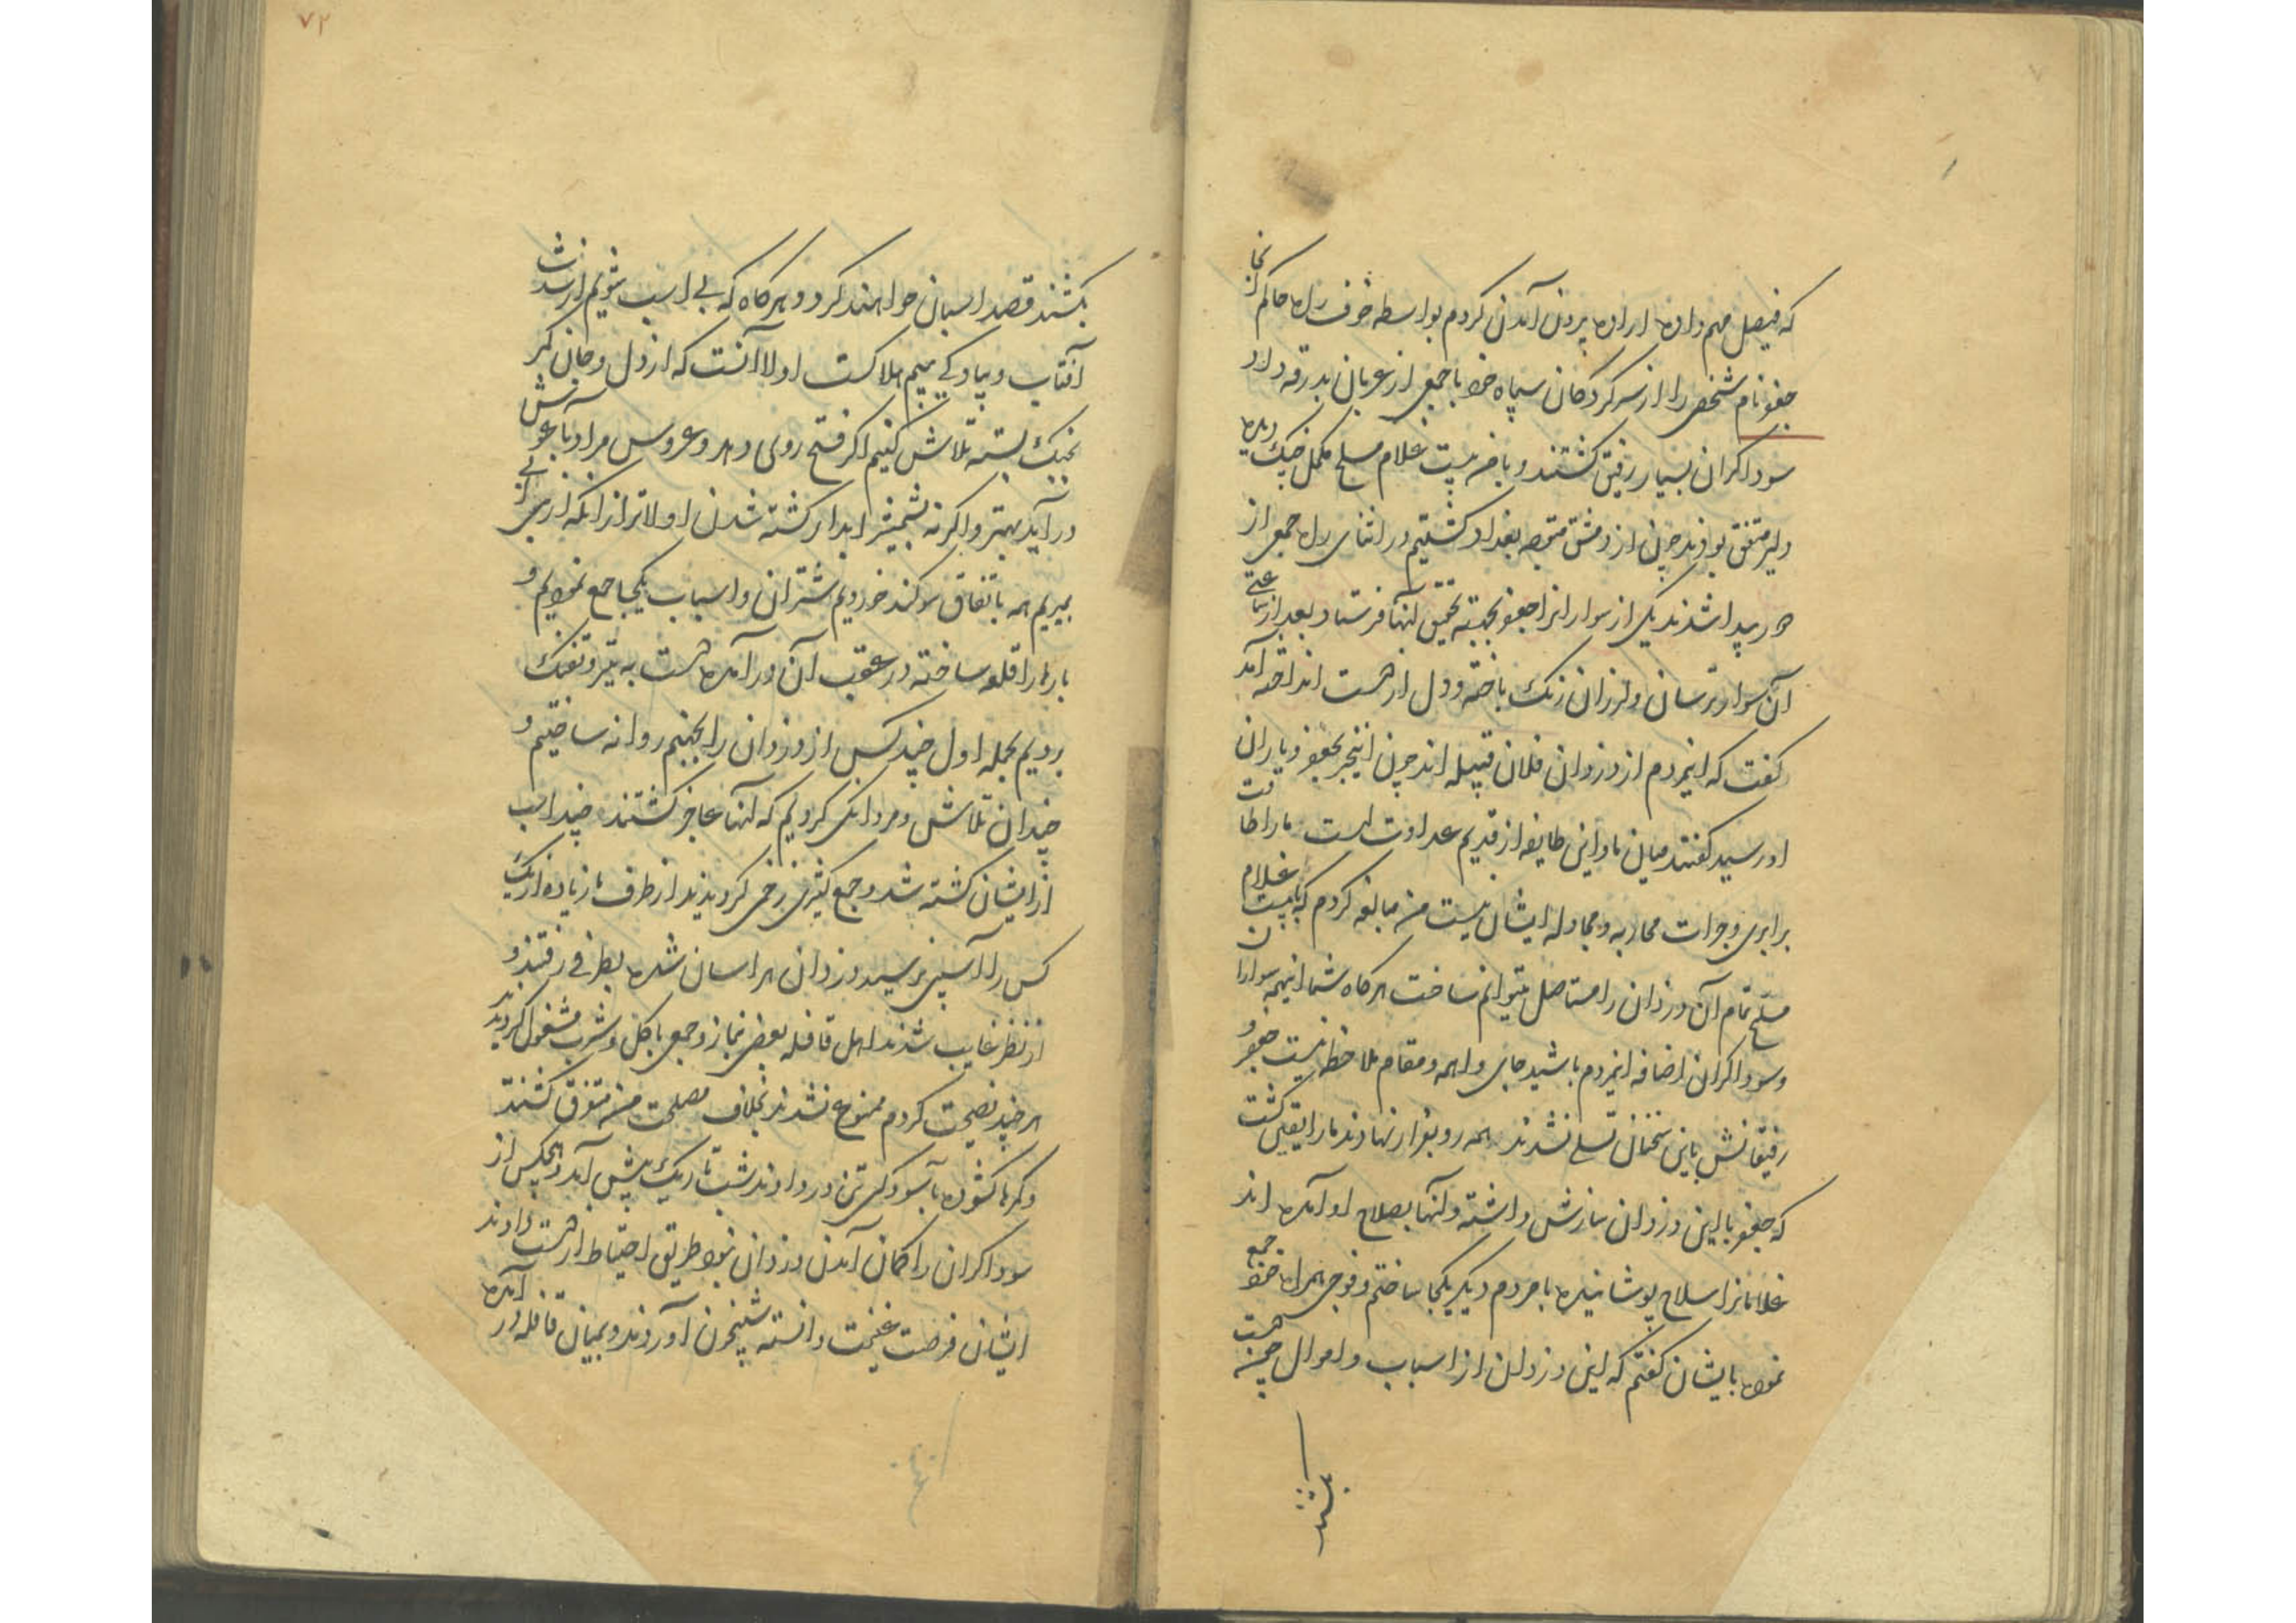 که فیصل مهم داده اراده بیرون آمدن کردم بواسطه خوف راه حاکم آنجا
جغفو نام شخصی را از سرکردکان سپاه خود با جمعی از عربان بدرقه داد
سوداکران بسیار رفیق کشتند و با من بیست غلام مسلح مکمل جنک دیده
دلیر متفق بودند چون از دمشق متوجه بغداد کشتیم در اثنای راه جمعی از
دور پیدا شدند یکی از سوارانرا جغفو بجهته تحقیق آنها فرستاد بعد از ساعتی
آن سوار ترسان و لرزان رنک باخته و دل از دست انداخته آمد
کفت که اینمردم از دزدان فلان قبیله اند چون اینخبر بجغفو و یاران
او رسید کفتند میان ما و این طایفه از قدیم عداوت است ما را طاقت
برابری و جرات محاربه و مجادله ایشان نیست من مبالغه کردم که با بیست غلام
مسلح تمام آن دزدان را مستاصل میتوانم ساخت هرکاه شما اینهمه سواران
و سوداکران اضافه اینمردم باشید جای واهمه و مقام ملاحظه نیست جغفو و
رفیقانش باین سخنان تسلی نشدند همه رو بفرار نهادند ما را یقین کشت
که جغفو با این دزدان سازش داشته و آنها بصلاح او آمده اند
غلامانرا سلاح پوشانیده با مردم دیکر یکجا ساختم و فوجی همراه خود جمع
نموده بایشان کفتم که این دزدان از اسباب و اموال چیزی دست
بکشند
۷۲
بکشند قصد اسبان خواهند کرد و هرکاه که بی اسب شویم از شدت
آفتاب و پیادکی بیم هلاکست اولا آنست که از دل و جان کمر
بجنک بسته تلاش کنیم اکر فتح روی دهد و عروس مراد باغوش
در آید بهتر و اکر نه بشمشیر ابدار کشته شدن اولاتر از انکه از بی آبی
بمیریم همه باتفاق سوکند خوردیم شتران و اسباب یکجا جمع نمودیم و
بارها را قلعه ساخته در عقب آن در آمده دست به تیر و تفنک
بردیم بحمله اول چند کس از دزدان را بجهنم روانه ساختیم و
چندان تلاش و مردانکی کردیم که آنها عاجز کشتند چند اسب
از ایشان کشته شد و جمع کثیری زخمی کردیدند از طرف ما زیاده از یک
کس را آسیبی نرسید دزدان هراسان شده بطرفی رفتند و
از نظر غایب شدند اهل قافله بعضی بنماز و جمعی باکل و شرب مشغول کردیدند
هر چند نصیحت کردم ممنوع نشدند بخلاف مصلحت من متفرق کشتند
و کمرها کشوده باسودکی تن در دادند شب تاریک پیش آمد و هیچکس از
سوداکران را کمان آمدن دزدان نبود طریق احتیاط از دست دادند
ایشان فرصت غنیمت دانسته شبیخون آوردند و بمیان قافله در آمده